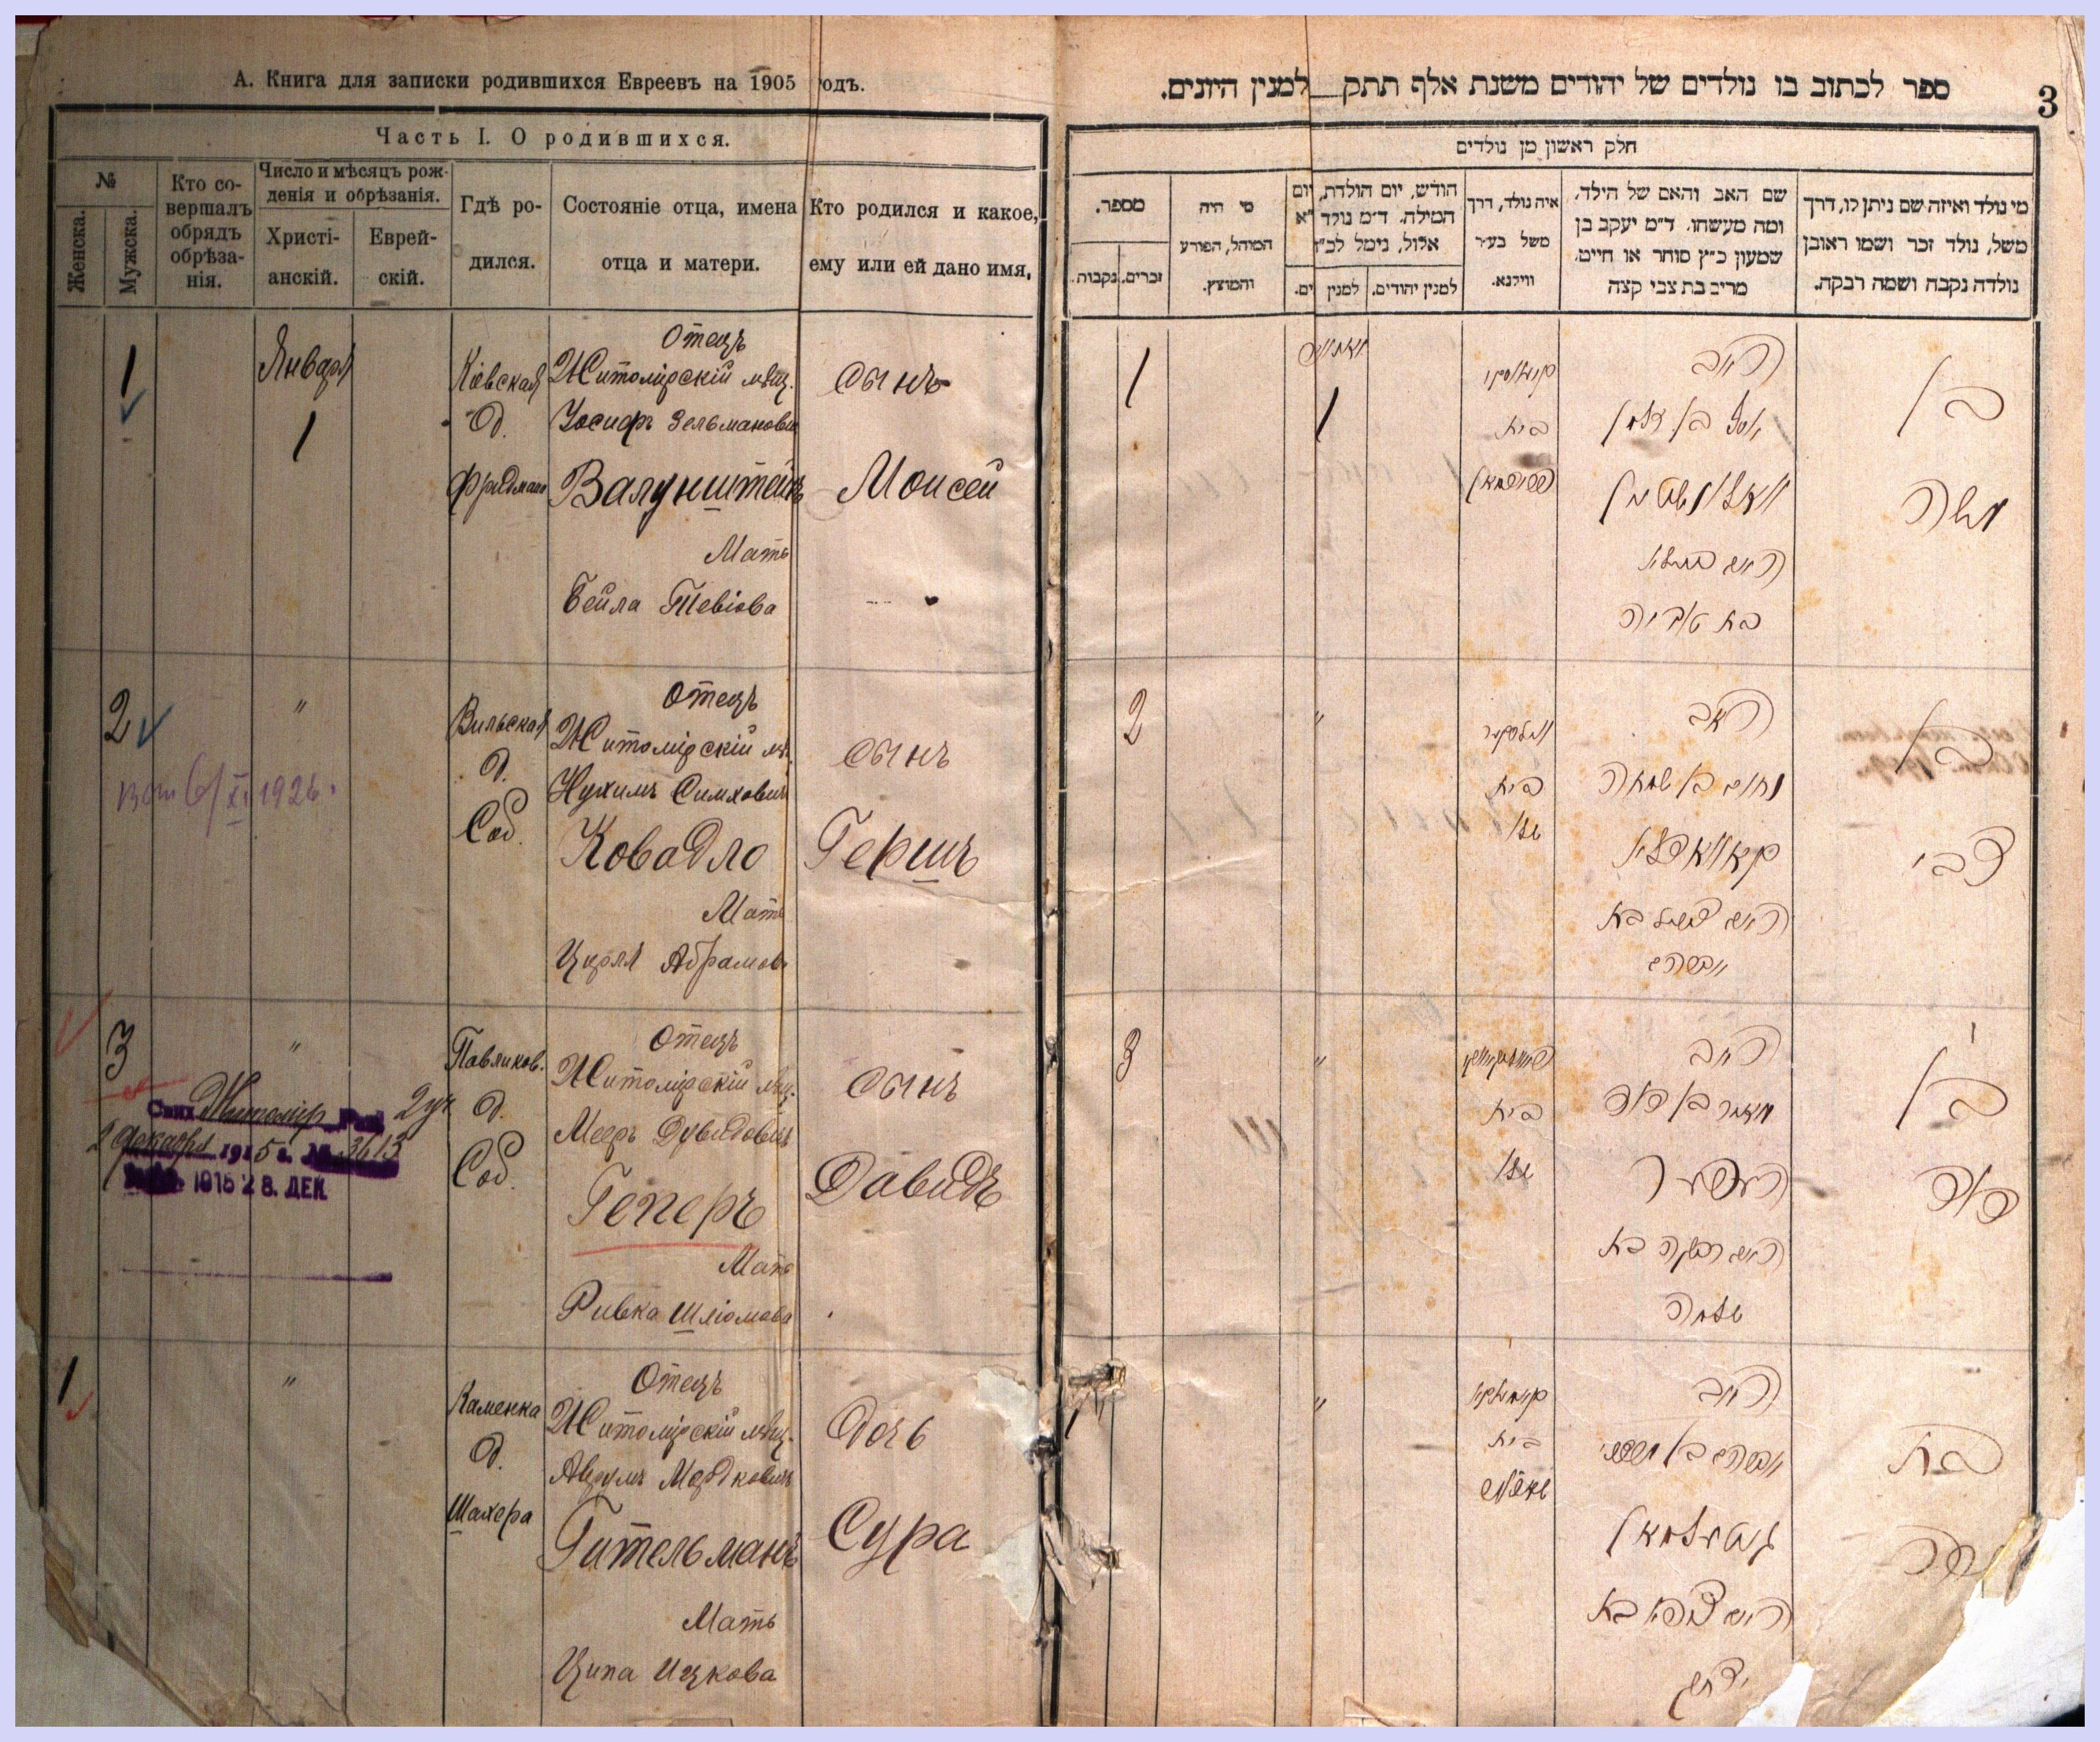 А. Книга для записки родившихся Евреевъ на 1905 годъ.
Часть I. О родившихся.
№
Женска.
Мужска.
Кто со-
вершалъ
обрядъ
обрѣза-
нія.
Число и мѣсяцъ рож-
денія и обрѣзанія.
Христі-
анскій.
Еврей-
скій.
Гдѣ ро-
дился.
Состояніе отца, имена
отца и матери.
Кто родился и какое,
ему или ей дано имя,
1
Января
1
Кіевская
д.
Отецъ
Житомірскій мѣщ.
Іосифъ Зельманович
Валунштейнъ
Мать
Бейла Тевіова
сынъ
Моисей
2
"
Вильская
д.
Соб.
Отецъ
Житомірскій мѣ
Нухимъ Симхович
Ковадло
Мать
Цирля Абрамов
сынъ
Гершъ
1926
3
"
Павликов.
д.
Соб.
Отецъ
Житомірскій мѣщ.
Мееръ Дувидович
Геперъ
Мать
Ривка Шліомова
сынъ
Давидъ
Житомір
2 декабря 1915 г. № 3613
1915 28. ДЕК
1
"
Каменка
д.
Шахера
Отецъ
Житомірскій мѣщ.
Аврумъ Мордкович
Гительманъ
Мать
Ципа Ицкова
дочь
Сура
3
ספר לכתוב בו נולדים של יהודים משנת אלף תתק למנין היונים.
חלק ראשון מן נולדים
מי נולד ואיזה שם ניתן לו, דרך
משל, נולד זכר ושמו ראובן
נולדה נקבה ושמה רבקה.
שם האב והאם של הילד,
ומה מעשהו. ד״מ יעקב בן
שמעון כ״ץ סוחר או חייט,
מרים בת צבי קצה
איה נולד, דרך
משל בעיר
ווילנא.
חודש, יום הולדת, יום
המילה. ד״מ נולד י״א
אלול, נימל לכ״ז
למנין יהודים.
למנין ים.
מי היה
המוהל, הפורע
והמוצץ.
מספר.
זכרים.
נקבות.
1
1
בית
האב
יוסף בן זלמן
וואלונשטיין
האם ביילא
בת טוביה
בן
משה
2
"
בית
שלו
האב
נחום בן שמחה
קאוואדלא
בן
צבי
3
"
בית
שלו
האב
מאיר בן דוד
העפער
האם רבקה בת
שלמה
בן
דוד
"
בית
האב
גיטעלמאן
האם ציפא בת
יצחק
בת
שרה